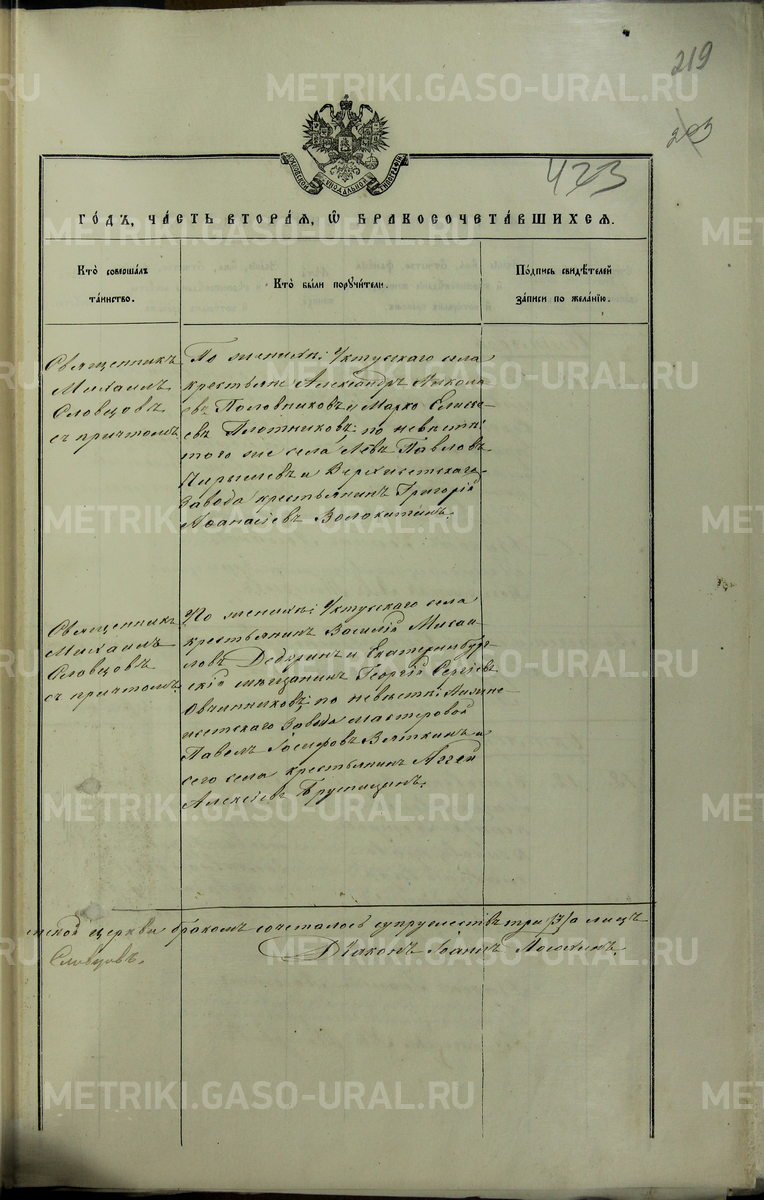 219
203
423
МОСКОВСКОЙ СѴНОДАЛЬНОЙ ТИПОГРАФІИ
ГО́ДЪ, ЧА́СТЬ ВТОРА́Я, Ѿ БРАКОСОЧЕТА́ВШИХСЯ.
Кто̀ соверша́лъ
та́инство.
Кто̀ бы́ли поручи́тели.
По́дпись свидѣ́телей
за́писи по жела́нію.
Священникъ
Михаилъ
Словцовъ
съ причтомъ
По женихѣ: Уктусскаго села
крестьяне Александръ Никола
евъ Половниковъ и Марко Елисѣ-
евъ Плотниковъ; по невѣстѣ:
того же села Левъ Павловъ
и Верхисетскаго
Завода крестьянинъ Григорій
Аѳанасіевъ Волокитинъ.
Священникъ
Михаилъ
Словцовъ
съ причтомъ
По женихѣ: Уктусскаго села
крестьянинъ Василій Михаи
ловъ и Екатеринбург-
скій мѣщанинъ Георгій Сергіевъ
Овчинниковъ; по невѣстѣ: Нижне-
исетскаго Завода мастеровой
Павелъ Іосифовъ Вяткинъ и
сего села крестьянинъ Аггей
Алексіевъ Брусницинъ.
церкви бракомъ сочеталось супружествъ три /3/ а лицъ
Словцовъ.
Діаконъ Іоаннъ
METRIKI.GASO-URAL.RU